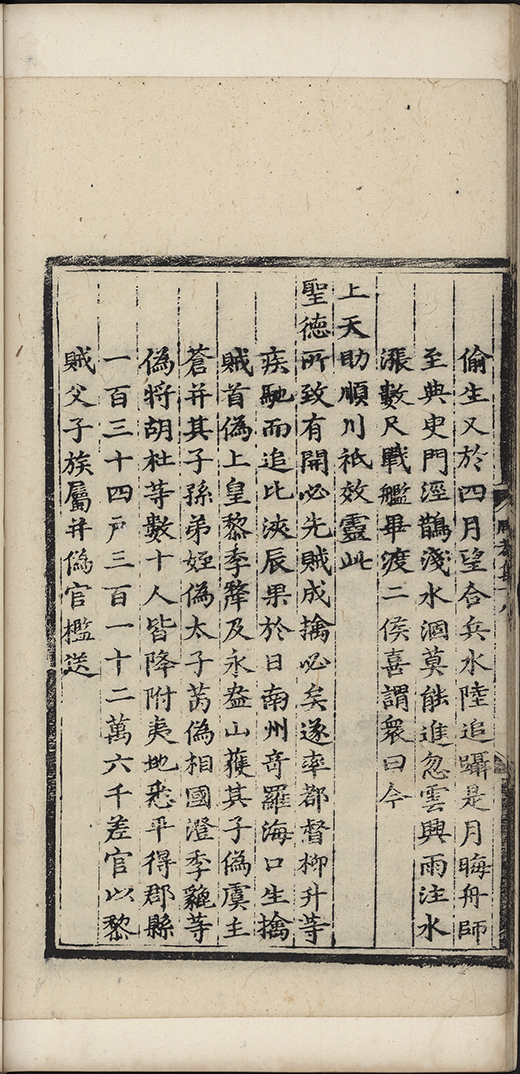 偷生又於四月望合兵水陸追躡是月晦舟師
至典史門涇鵲淺水涸莫能進忽雲興雨注水
漲數尺戰艦畢渡二侯喜謂衆曰今
上天助順川祇效靈此
聖德所致有開必先賊成擒必矣遂率都督柳升等
疾馳而追比浹辰果於日南州竒羅海口生擒
賊首偽上皇黎季犛及永盎山獲其子偽虞主
蒼并其子孫弟姪偽太子芮偽相國澄季貔等
偽將胡杜等數十人皆降附夷地悉平得郡縣
一百三十四戸三百一十二萬六千差官以黎
賊父子族屬并偽官檻送